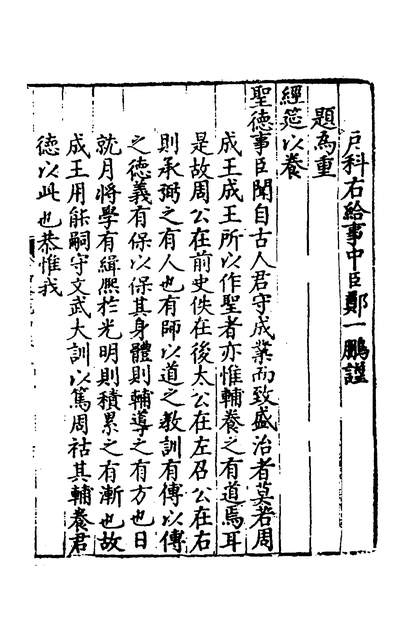 戶科右給事中臣鄭一鵬謹
題為重
經筵以養
聖德事臣聞自古人君守成業而致盛治者莫若周
成王成王所以作聖者亦惟輔養之有道焉耳
是故周公在前史佚在後太公在左召公在右
則承弼之有人也有師以道之教訓有傅以傅
之德義有保以保其身體則輔導之有方也日
就月將學有緝熙於光明則積累之有漸也故
成王用能嗣守文武大訓以篤周祜其輔養君
德以此也恭惟我